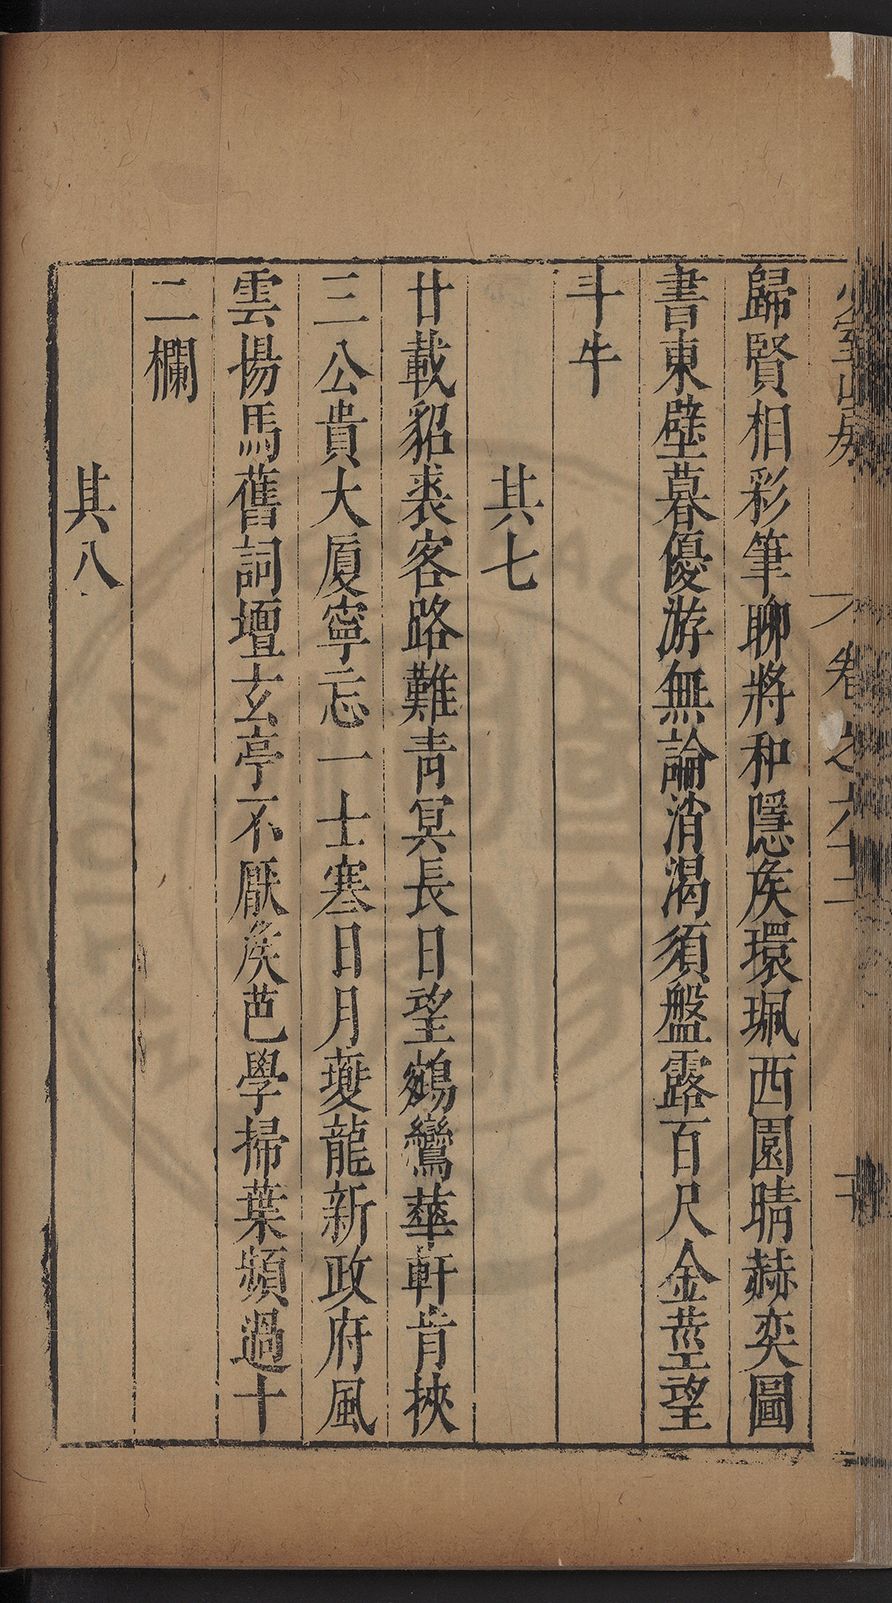 歸賢相彩筆聊將和隱矦環珮西園晴赫奕圖
書東壁暮優游無論消渴須盤露百尺金莖望
斗牛
其七
廿載貂裘客路難青冥長日望鵷鸞華軒肯挾
三公貴大厦寧忘一士寒日月夔龍新政府風
雲揚馬舊詞壇玄亭不厭矦芭學掃葉頻過十
二欄
其八